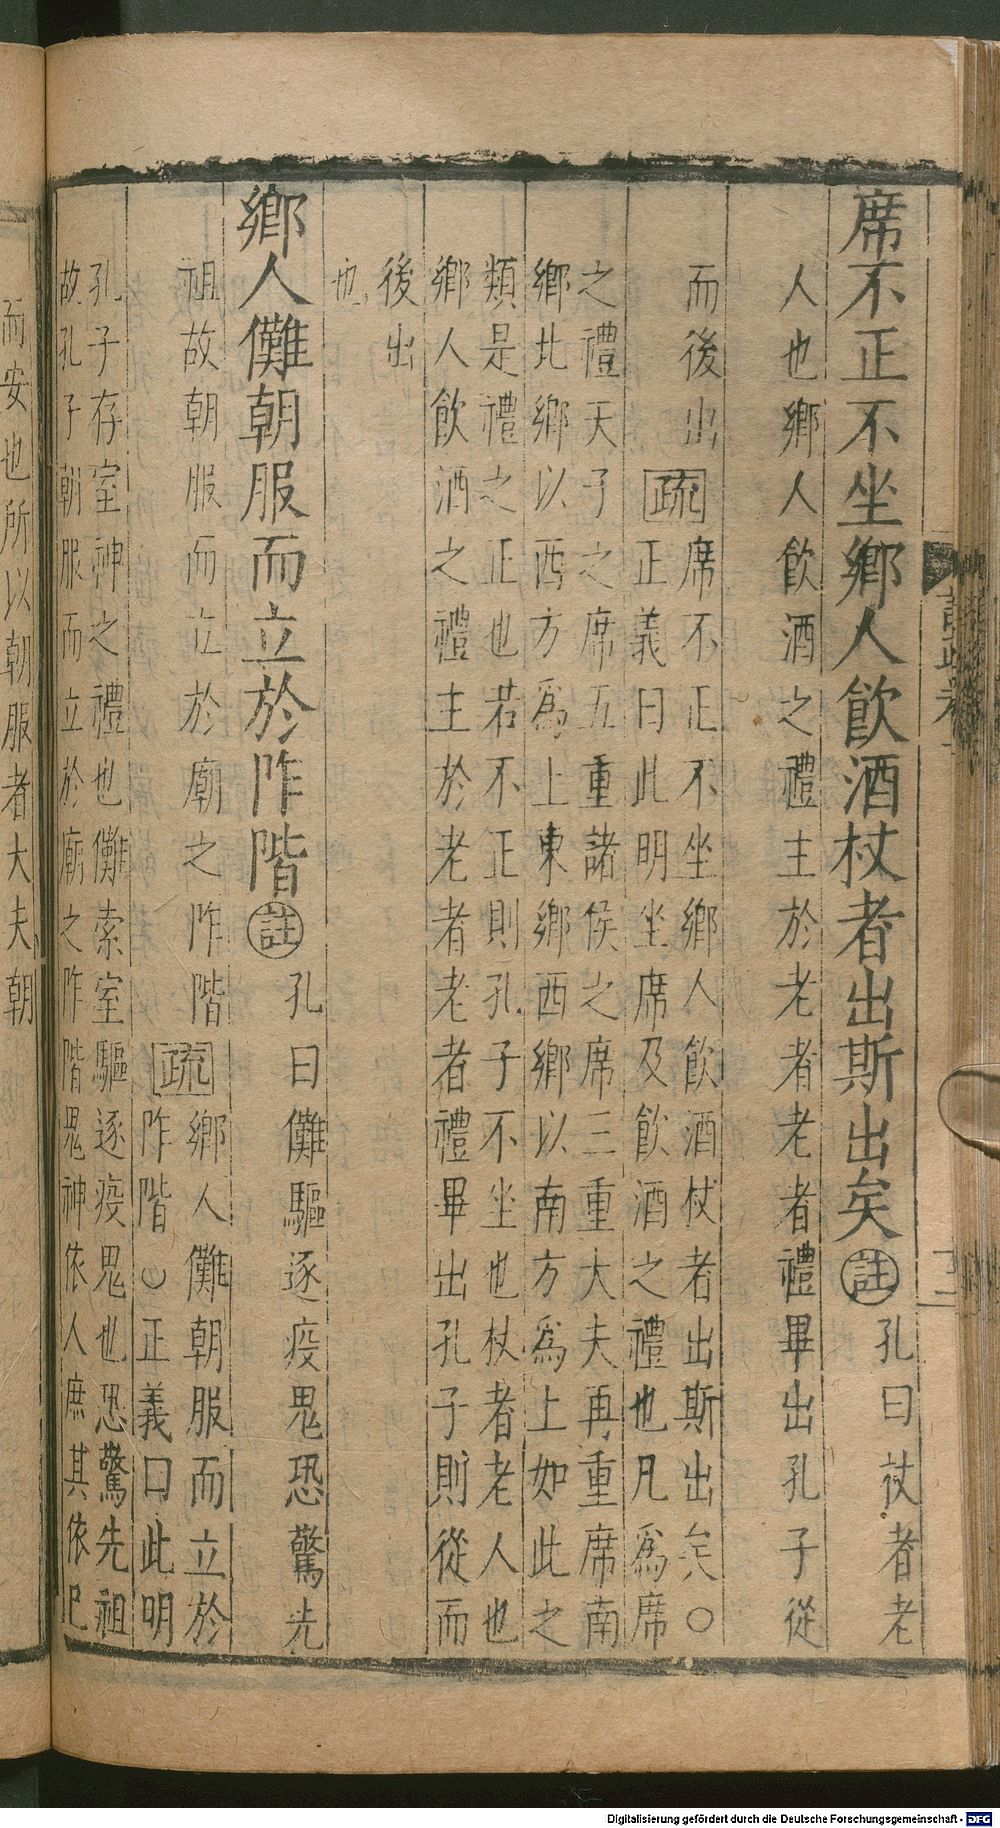 席不正不坐鄉人飲酒杖者出斯出矣註孔曰杖者老
人也鄉人飲酒之禮主於老者老者禮畢出孔子從
而後出
疏席不正不坐鄉人飲酒杖者出斯出矣○
正義曰此明坐席及飲酒之禮也凡爲席
之禮天子之席五重諸侯之席三重大夫再重席南
鄉北鄉以西方爲上東鄉西鄉以南方爲上如此之
類是禮之正也若不正則孔子不坐也杖者老人也
鄉人飲酒之禮主於老者老者禮畢出孔子則從而
後出
也
鄉人儺朝服而立於阼階註孔曰儺驅逐疫鬼恐驚先
祖故朝服而立於廟之阼階
疏鄉人儺朝服而立於
阼階○正義曰此明
孔子存室神之禮也儺索室驅逐疫鬼也恐驚先祖
故孔子朝服而立於廟之阼階鬼神依人庶其依已
而安也所以朝服者大夫朝
Digitalisierung gefördert durch die Deutsche Forschungsgemeinschaft - DFG